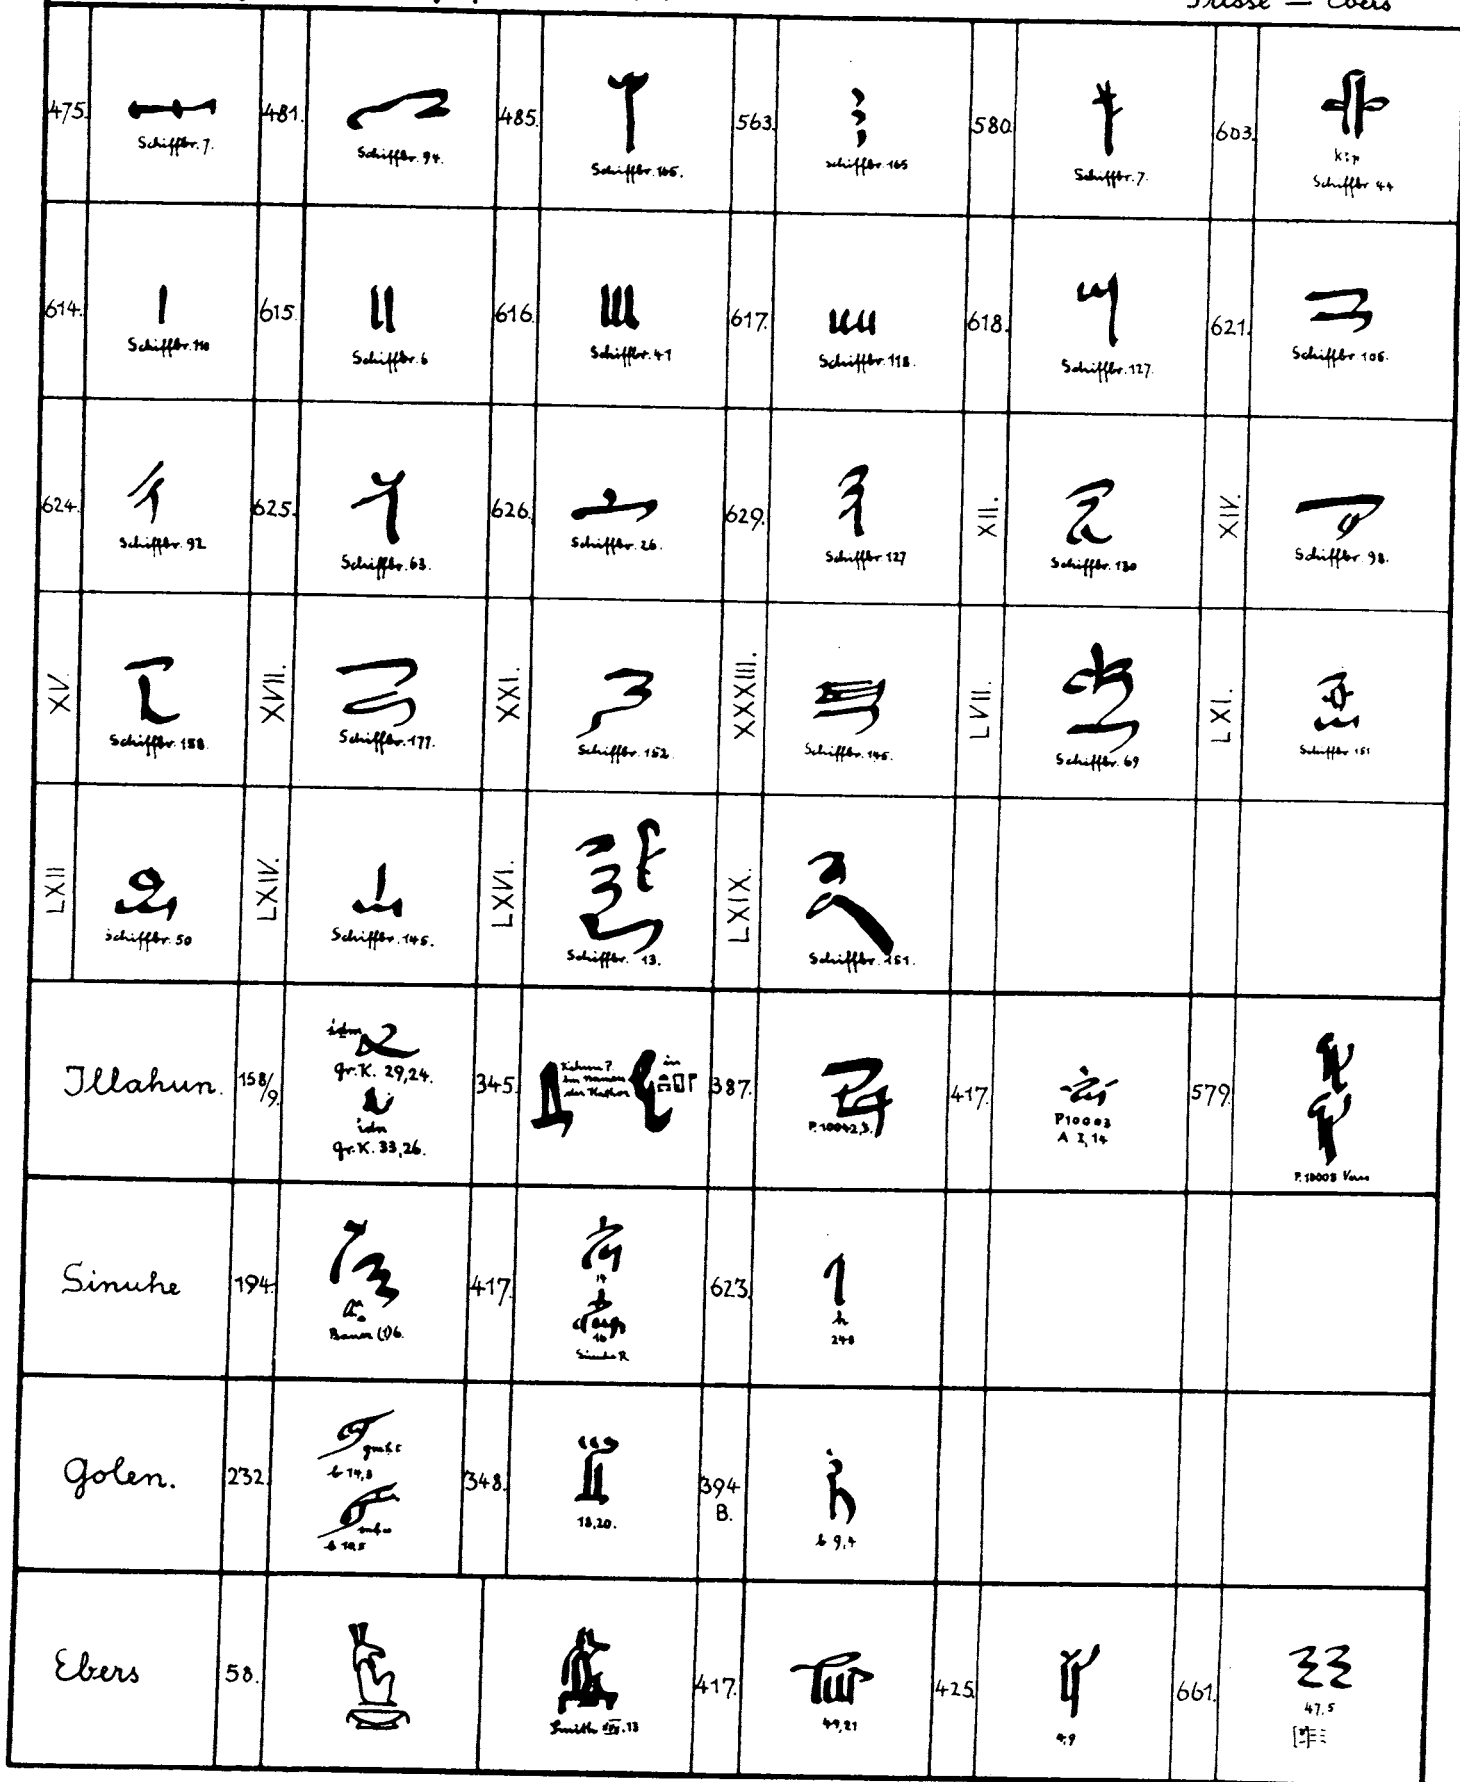 Prisse — Ebers
475. Schiffbr. 7. 481. Schiffbr. 94. 485. Schiffbr. 165. 563. Schiffbr. 165 580. Schiffbr. 7. 603. Schiffbr 44
614. Schiffbr. 110 615. Schiffbr. 6 616. Schiffbr. 41 617. Schiffbr. 118. 618. Schiffbr. 127. 621. Schiffbr. 106.
624. Schiffbr. 92 625. Schiffbr. 63. 626. Schiffbr. 26. 629. Schiffbr. 127 XII. Schiffbr. 180 XIV. Schiffbr. 98.
XV. Schiffbr. 158. XVII. Schiffbr. 177. XXI. Schiffbr. 152. XXXIII. Schiffbr. 145. LVII. Schiffbr. 69 LXI. Schiffbr 151
LXII Schiffbr. 50 LXIV. Schiffbr. 145. LXVI. Schiffbr. 13. LXIX. Schiffbr. 151.
Illahun. 158/9. idm Gr. K. 29,24. idn Gr. K. 33,26. 345. im Namen der Hathor in 387. P. 10042, 417. P10003 A I, 14 579. P. 10003 Vers
Sinuhe 194. Bauer (1) 6. 417. 14 16 Sinuhe R 623. h 248
Golen. 232. b 14,8 348. 18,20. 394 B. b 9,4
Ebers 58. Smith 13 417. 49,21 425. 4,9 661. 47,5